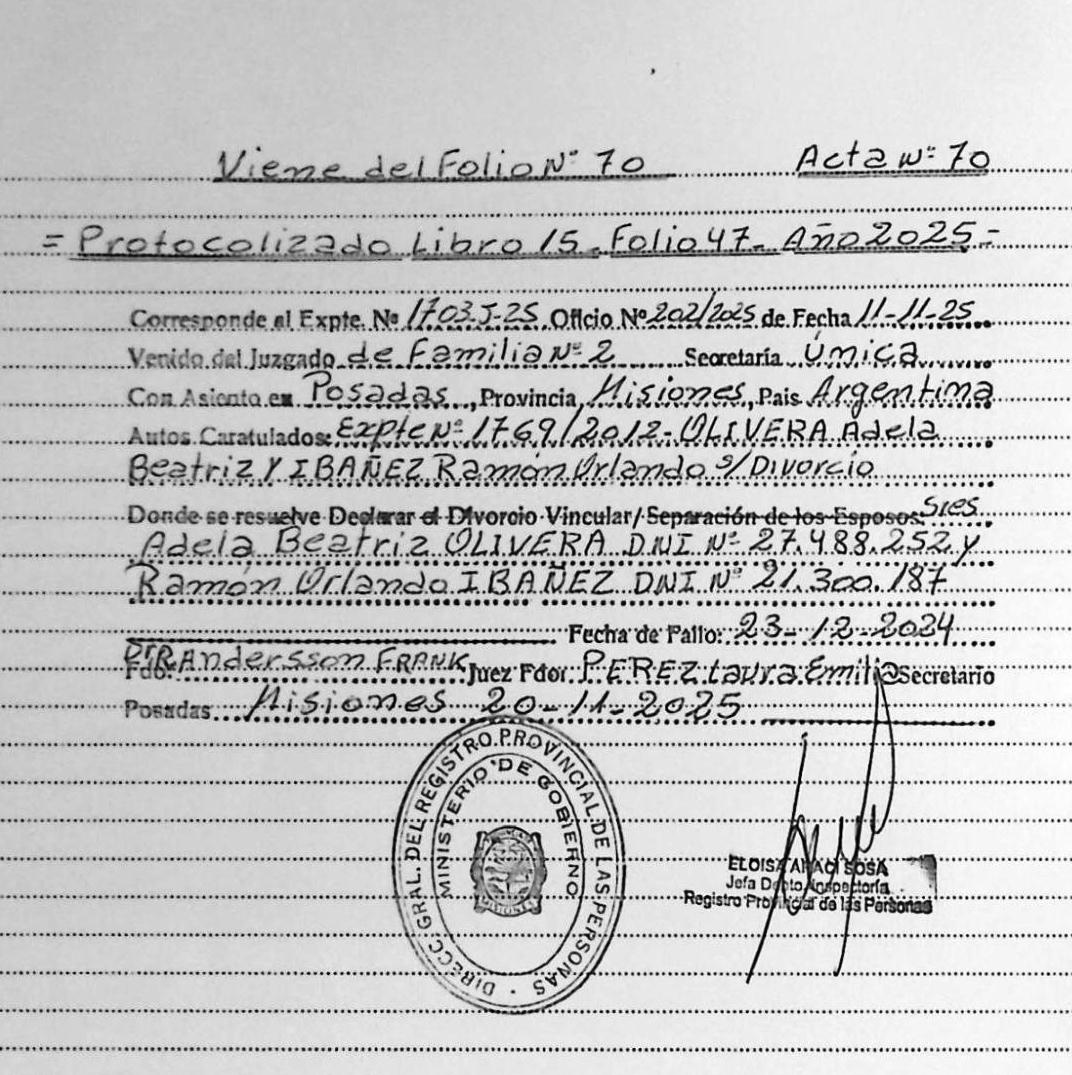 Viene del Folio Nº 70 Acta Nº 70
= Protocolizado Libro 15 - Folio 47 - Año 2025 -
Corresponde al Expte. Nº 1703-J-25 Oficio Nº 202/2025 de Fecha 11-11-25
Venido del Juzgado de Familia Nº 2 Secretaría Única
Con Asiento en Posadas, Provincia Misiones, Pais Argentina
Autos Caratulados: Expte Nº 1769/2012 - OLIVERA Adela
Beatriz Y IBAÑEZ Ramón Orlando s/ Divorcio
Donde se resuelve Declarar el Divorcio Vincular/ Separación de los Esposos: Sres
Adela Beatriz OLIVERA DNI Nº 27.488.252 y
Ramón Orlando IBAÑEZ DNI Nº 21.300.187
Fecha de Fallo: 23-12-2024
Fdo. Andersson FRANK Juez Fdor. PEREZ Laura Emilia Secretario
Posadas Misiones 20-11-2025
DIRECC. GRAL. DEL REGISTRO PROVINCIAL DE LAS PERSONAS
MINISTERIO DE GOBIERNO
MISIONES
ELOISA ARACI SOSA
Jefa Depto. Inspectoría
Registro Provincial de las Personas